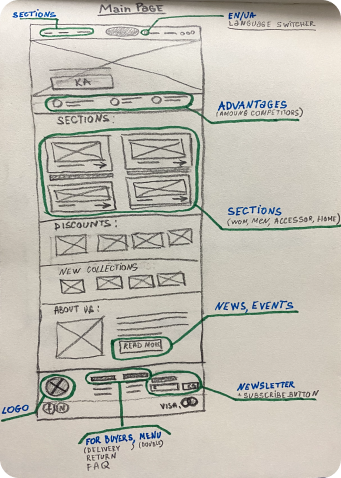 Main Page
SECTIONS
EN/UA
LANGUAGE SWITCHER
KA
ADVANTAGES
(AMOUNG COMPETITORS)
SECTIONS:
SECTIONS
(WOM, MEN, ACCESSOR, HOME)
DISCOUNTS:
NEW COLLECTIONS
ABOUT US:
NEWS, EVENTS
READ MORE
NEWSLETTER
+ SUBSCRIBE BUTTON
LOGO
IN
VISA,
FOR BUYERS, MENU
(DELIVERY
(DOUBLE)
RETURN
FAQ